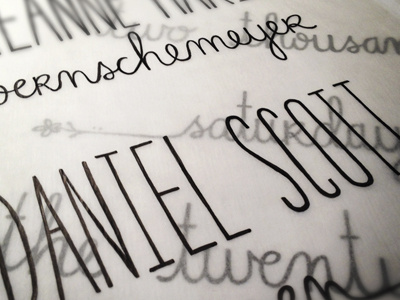 JEANNE MAR
two thousan
oernschemeyer
saturday
DANIEL SCOTT
the twent